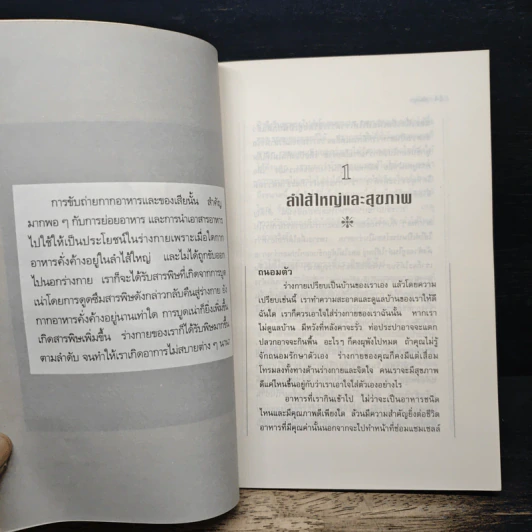 การขับถ่ายกากอาหารและของเสียนั้น สำคัญ
มากพอ ๆ กับการย่อยอาหาร และการนำเอาสารอาหาร
ไปใช้ให้เป็นประโยชน์ในร่างกายเพราะเมื่อใดกาก
อาหารคั่งค้างอยู่ในลำไส้ใหญ่ และไม่ได้ถูกขับออก
ไปนอกร่างกาย เราก็จะได้รับสารพิษที่เกิดจากการบูด
เน่าโดยการดูดซึมสารพิษดังกล่าวกลับคืนสู่ร่างกาย ยิ่ง
กากอาหารคั่งค้างอยู่นานเท่าใด การบูดเน่าก็ยิ่งเพิ่มขึ้น
เกิดสารพิษเพิ่มขึ้น ร่างกายของเราก็ได้รับพิษมากขึ้น
ตามลำดับ จนทำให้เราเกิดอาการไม่สบายต่าง ๆ
1
ลำไส้ใหญ่และสุขภาพ
ถนอมตัว
ร่างกายเปรียบเป็นบ้านของเราเอง แล้วโดยความ
เปรียบเช่นนี้ เราทำความสะอาดและดูแลบ้านของเราให้ดี
ฉันใด เราก็ควรเอาใจใส่ร่างกายของเราฉันนั้น หากเรา
ไม่ดูแลบ้าน มิหวังที่หลังคาจะรั่ว ท่อประปาอาจจะแตก
ปลวกอาจจะกินพื้น อะไร ๆ ก็คงผุพังไปหมด ถ้าคุณไม่รู้
จักถนอมรักษาตัวเอง ร่างกายของคุณก็คงมีแต่เสื่อม
โทรมลงทั้งทางด้านร่างกายและจิตใจ คนเราจะมีสุขภาพ
ดีแค่ไหนขึ้นอยู่กับว่าเราเอาใจใส่ตัวเองอย่างไร
อาหารที่เรากินเข้าไป ไม่ว่าจะเป็นอาหารชนิด
ไหนและมีคุณภาพดีเพียงใด ล้วนมีความสำคัญยิ่งต่อชีวิต
อาหารที่มีคุณค่านั้นนอกจากจะไปทำหน้าที่ซ่อมแซมเซลล์